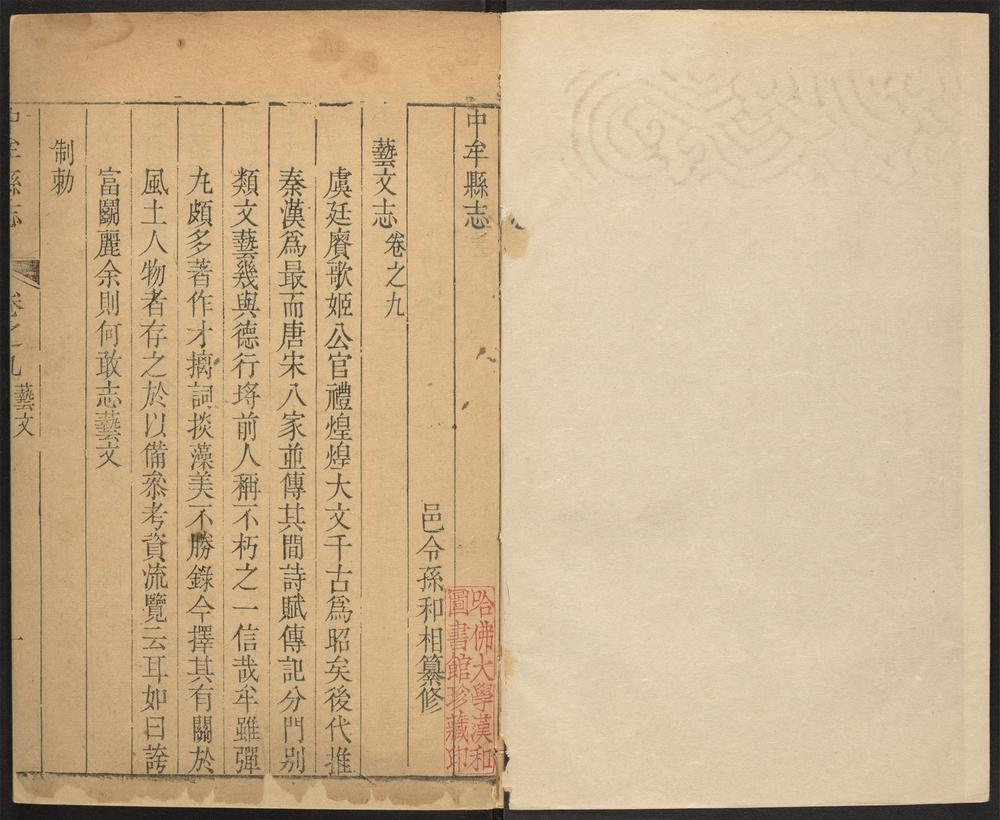 中牟縣志
邑令孫和相纂修
藝文志卷之九
虞廷賡歌姬公官禮煌煌大文千古為昭矣後代推
秦漢為最而唐宋八家並傳其間詩賦傳記分門別
類文藝幾與德行埒前人稱不朽之一信哉牟雖彈
丸頗多著作才摛詞掞藻美不勝錄今擇其有關於
風土人物者存之於以備叅考資流覽云耳如曰誇
富鬭麗余則何敢志藝文
制勅
中牟縣志 卷之九 藝文 一
哈佛大學漢和
圖書館珍藏印